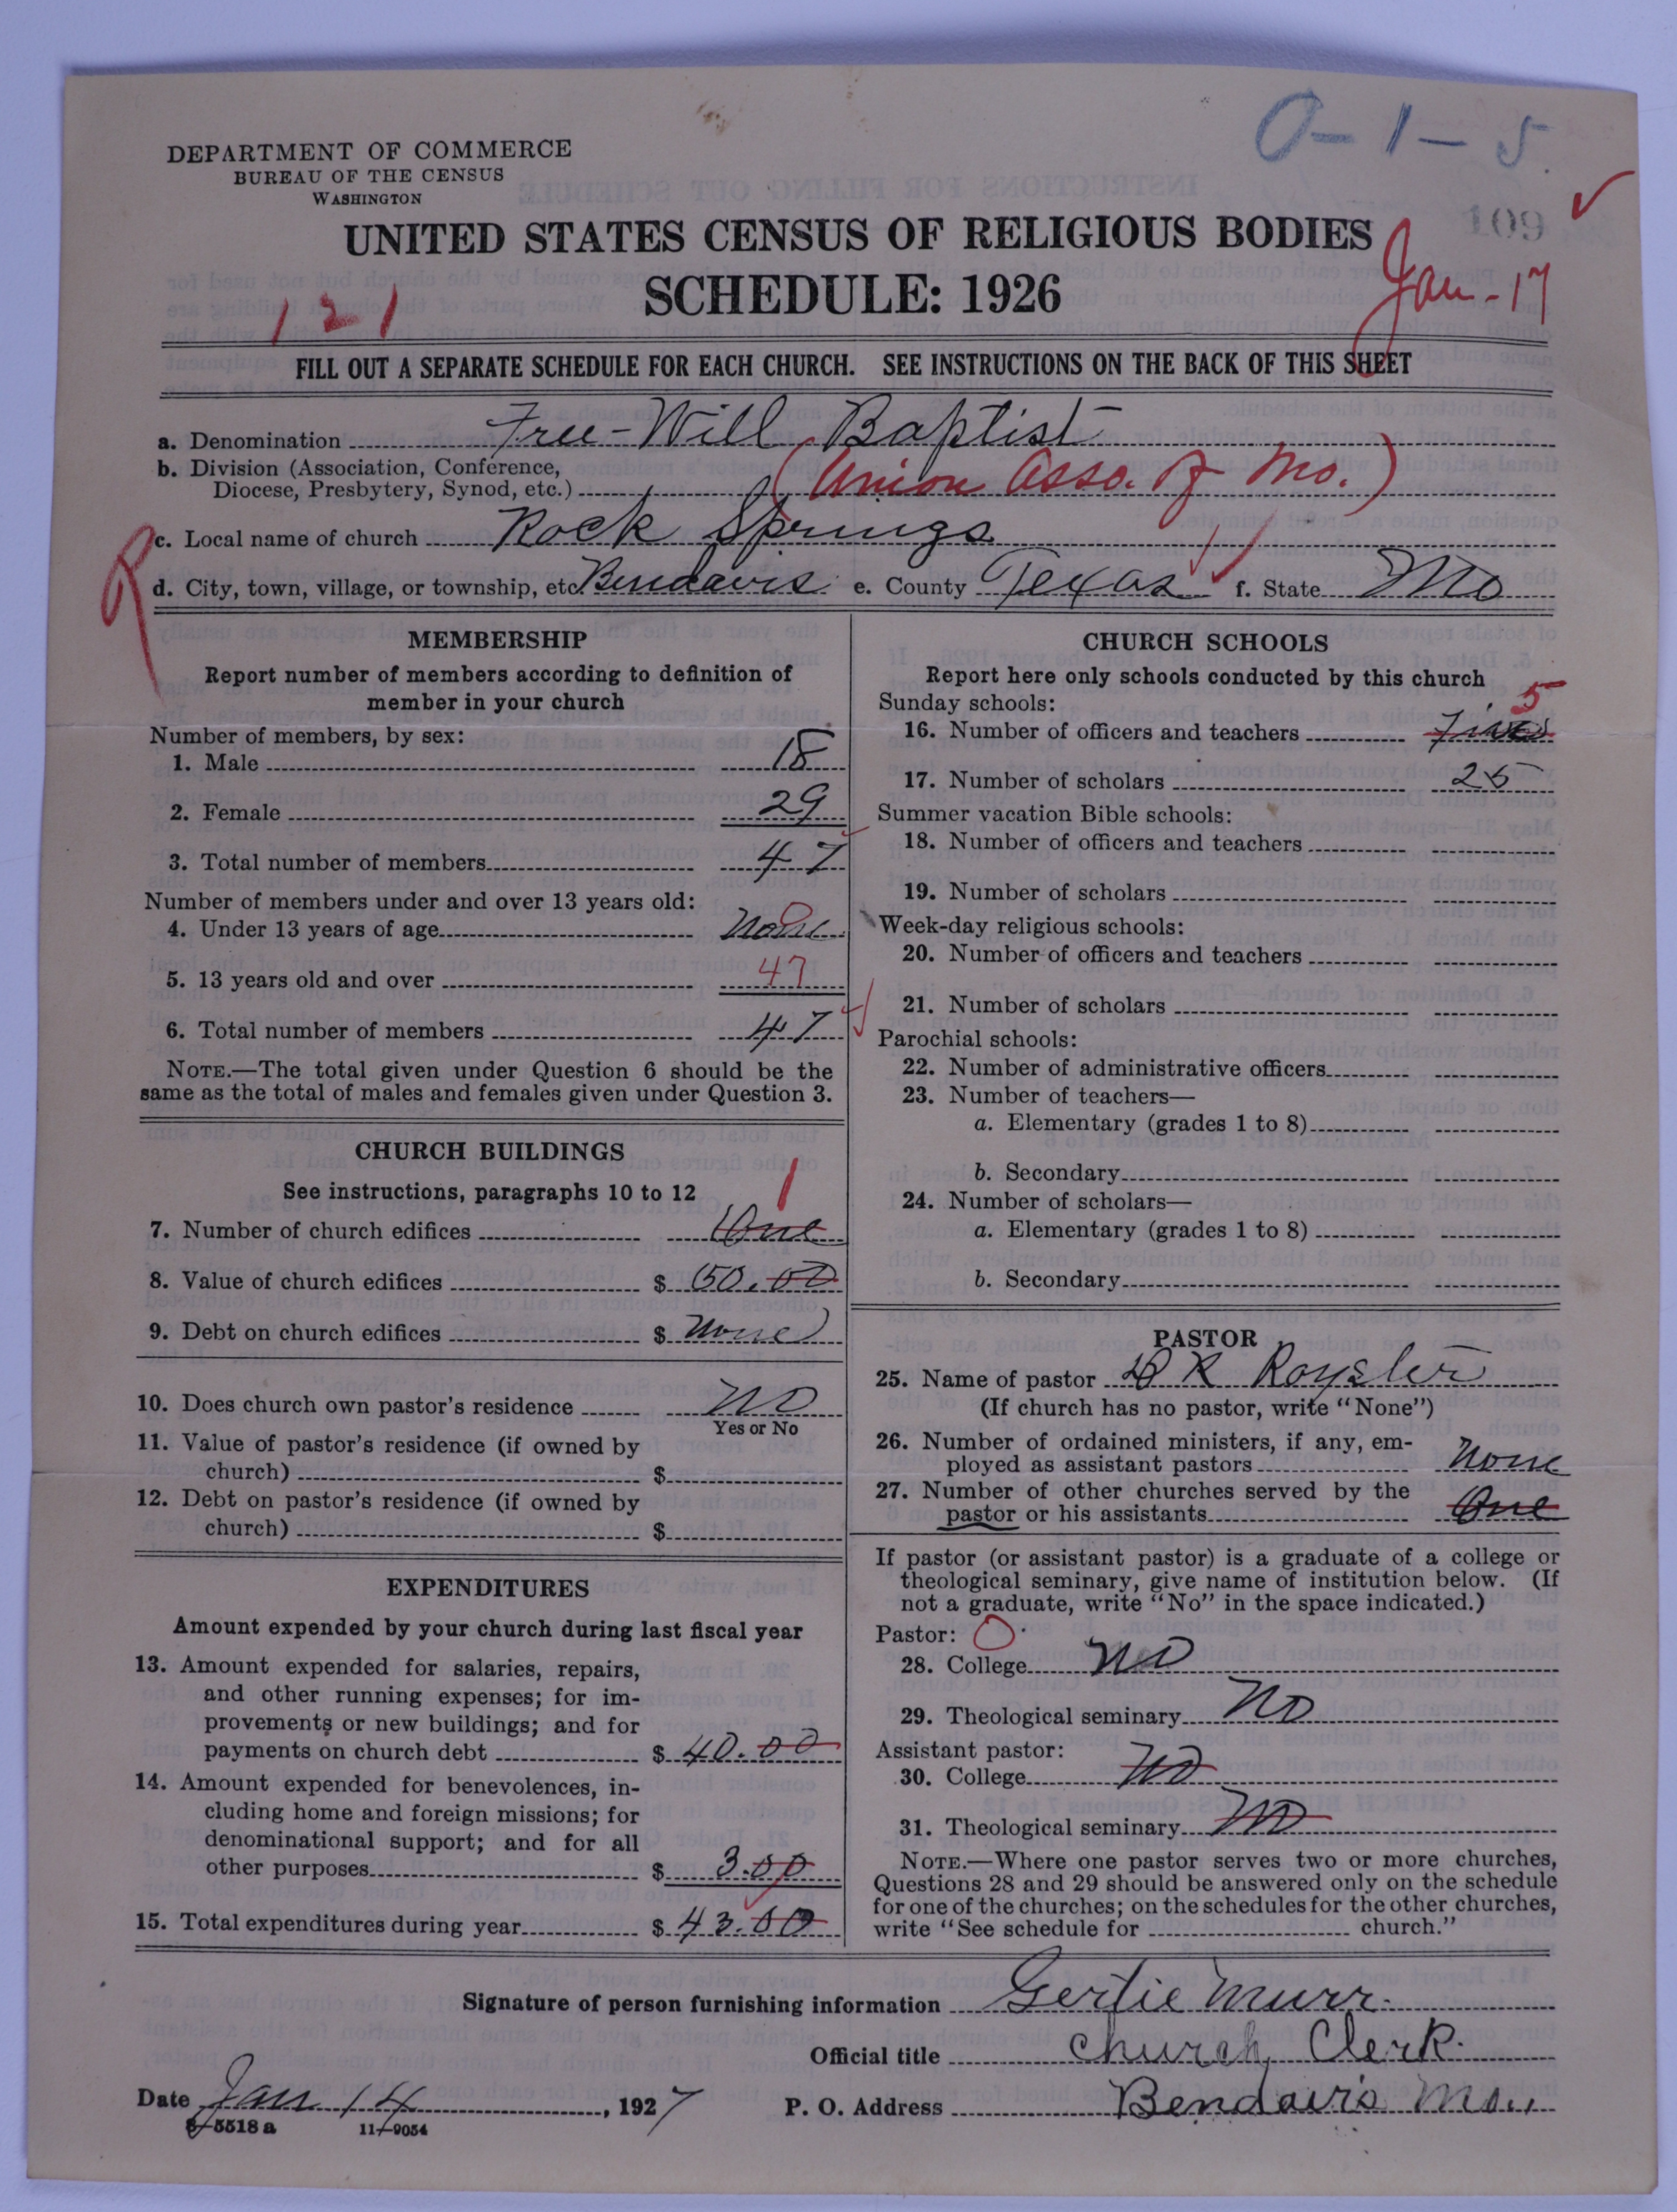 O-1-5
DEPARTMENT OF COMMERCE
BUREAU OF THE CENSUS
WASHINGTON
109
UNITED STATES CENSUS OF RELIGIOUS BODIES
SCHEDULE: 1926
Jan-17
121
FILL OUT A SEPARATE SCHEDULE FOR EACH CHURCH. SEE INSTRUCTIONS ON THE BACK OF THIS SHEET
a. Denomination Free-Will Baptist
b. Division (Association, Conference,
Diocese, Presbytery, Synod, etc.) (Union Asso. of Mo.)
R
c. Local name of church Rock Springs
d. City, town, village, or township, etc. Bendavis e. County Texas f. State Mo
MEMBERSHIP
Report number of members according to definition of
member in your church
Number of members, by sex:
1. Male 18
2. Female 29
3. Total number of members 47
Number of members under and over 13 years old:
4. Under 13 years of age None 0
5. 13 years old and over 47
6. Total number of members 47
NOTE.—The total given under Question 6 should be the
same as the total of males and females given under Question 3.
CHURCH BUILDINGS
See instructions, paragraphs 10 to 12
1
7. Number of church edifices One
8. Value of church edifices $ 150.00
9. Debt on church edifices $ None
10. Does church own pastor's residence No
Yes or No
11. Value of pastor's residence (if owned by
church) $
12. Debt on pastor's residence (if owned by
church) $
EXPENDITURES
Amount expended by your church during last fiscal year
13. Amount expended for salaries, repairs,
and other running expenses; for im-
provements or new buildings; and for
payments on church debt $ 40.00
14. Amount expended for benevolences, in-
cluding home and foreign missions; for
denominational support; and for all
other purposes $ 3.00
15. Total expenditures during year $ 43.00
CHURCH SCHOOLS
Report here only schools conducted by this church
Sunday schools:
5
16. Number of officers and teachers Five
17. Number of scholars 25
Summer vacation Bible schools:
18. Number of officers and teachers
19. Number of scholars
Week-day religious schools:
20. Number of officers and teachers
21. Number of scholars
Parochial schools:
22. Number of administrative officers
23. Number of teachers—
a. Elementary (grades 1 to 8)
b. Secondary
24. Number of scholars—
a. Elementary (grades 1 to 8)
b. Secondary
PASTOR
25. Name of pastor R Royster
(If church has no pastor, write "None")
26. Number of ordained ministers, if any, em-
ployed as assistant pastors None
27. Number of other churches served by the
pastor or his assistants One
If pastor (or assistant pastor) is a graduate of a college or
theological seminary, give name of institution below. (If
not a graduate, write "No" in the space indicated.)
Pastor: 0
28. College No
29. Theological seminary No
Assistant pastor:
30. College No
31. Theological seminary No
NOTE.—Where one pastor serves two or more churches,
Questions 28 and 29 should be answered only on the schedule
for one of the churches; on the schedules for the other churches,
write "See schedule for church."
Signature of person furnishing information Gertie Murr.
Official title Church Clerk.
Date Jan 14, 1927 P. O. Address Bendavis Mo.,
8-5518 a 11-9054